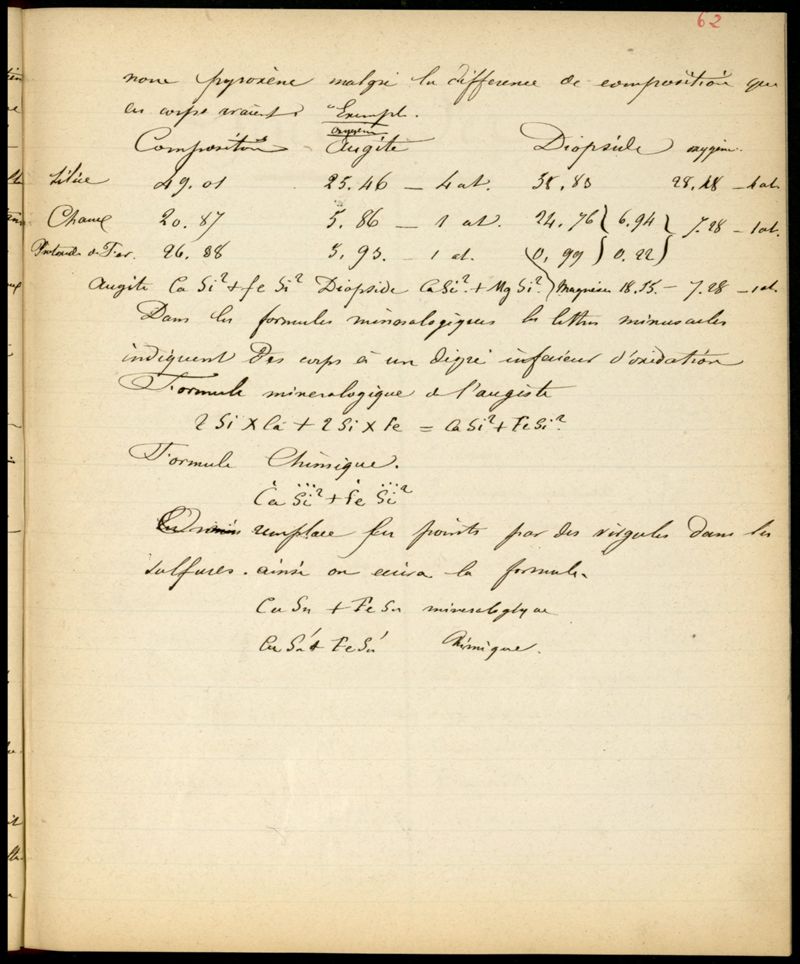 62
nom pyroxène malgré la différence de composition que
ces corps Exemple.
oxygène
Composition Augite Diopside oxygène.
Silice 49.01 25.46 — 4 at. 58,83 28,18 — 4 at.
Chaux 20.87 5.86 — 1 at. 24.76 } 6.94 } 7.28 — 1 at.
Protoxide de Fer. 26.88 5,93. — 1 at. 0,99 } 0.22 }
Augite Ca Si² + fe Si² Diopside Ca Si² + Mg Si² } Magnésie 18.55 — 7.28 — 1 at.
Dans les formules minéralogiques les lettres minuscules
indiquent des corps à un degré inférieur d'oxidation
Formule minéralogique de l'augiste
2 Si × Ca + 2 Si × Fe = Ca Si² + Fe Si².
Formule Chimique.
Ċa S⃛i² + ḟe S⃛i²
remplace les points par des virgules dans les
sulfures. ainsi on écrira la formule.
Cu Su + Fe Su mineralogique
Cu Su' + Fe Su' Chimique.